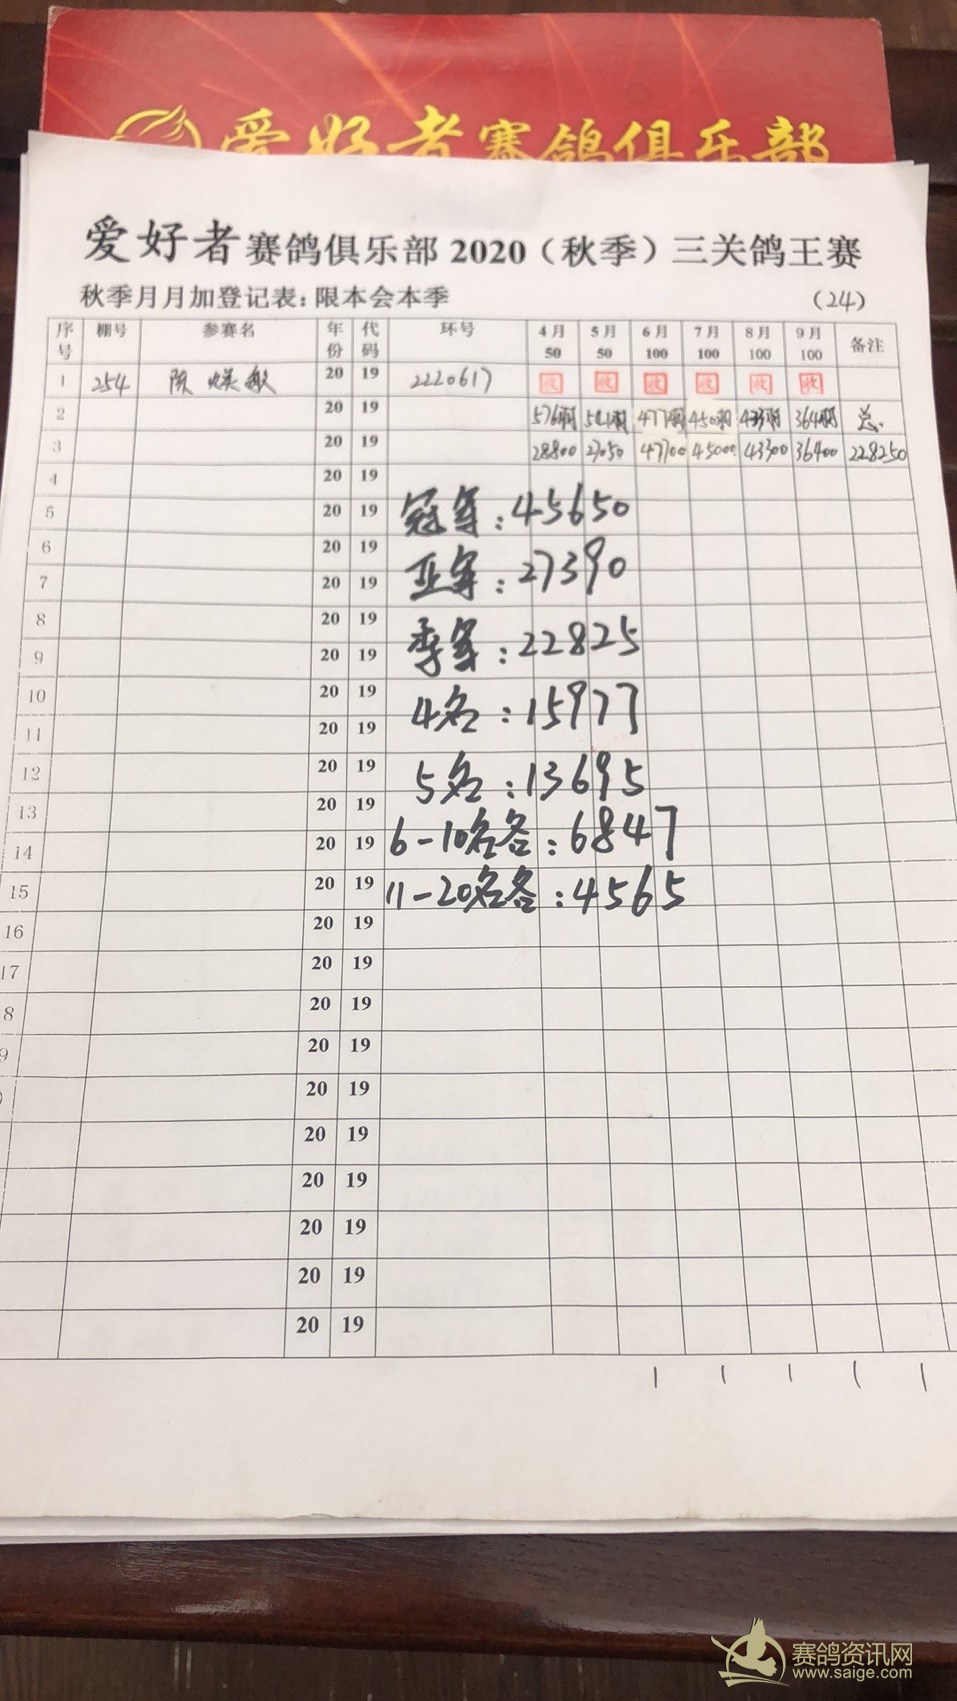 爱好者赛鸽俱乐部
爱好者赛鸽俱乐部2020（秋季）三关鸽王赛
秋季月月加登记表：限本会本季 （24）
序号 棚号 参赛名 年份 代码 环号 4月50 5月50 6月100 7月100 8月100 9月100 备注
1 254 陈 敏 20 19 2220617 收 收 收 收 收 收
2 20 19 576羽 541羽 477羽 450羽 433羽 364羽 总
3 20 19 28800 27050 47700 45000 43300 36400 228250
4 20 19
5 20 19 冠军：45650
6 20 19
7 20 19 亚军：27390
8 20 19
9 20 19 季军：22825
10 20 19
11 20 19 4名：15977
12 20 19
13 20 19 5名：13695
14 20 19 6-10名各：6847
15 20 19 11-20名各：4565
16 20 19
17 20 19
8 20 19
9 20 19
20 19
20 19
20 19
20 19
20 19
20 19
赛鸽资讯网
www.saige.com